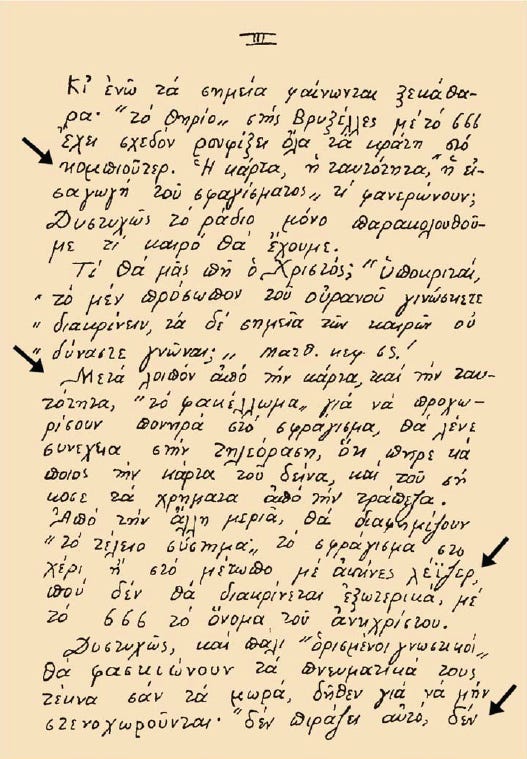 III
Κι' ἐνῶ τά σημεῖα φαίνωνται ξεκάθα-
ρα· "τό θηρίο„ στής Βρυξέλλες μέ τό 666
ἔχει σχεδόν ρουφίξει ὅλα τά κράτη στό
κομπιοῦτερ. Ἡ κάρτα, ἡ ταυτότητα, "ἡ εἰ-
σαγωγή τοῦ σφαγίσματος„ τί φανερώνουν;
Δυστυχῶς τό ράδιο μόνο παρακολουθοῦ-
με τί καιρό θά ἔχουμε.
Τί θά μᾶς πῆ ὁ Χριστός; "ὑποκριταί,
"τό μέν πρόσωπον τοῦ οὐρανοῦ γινώσκετε
"διακρίνειν, τά δέ σημεῖα τῶν καιρῶν οὐ
"δύναστε γνῶναι;„ Ματθ. κεφ 65.!
Μετά λοιπόν ἀπό τήν κάρτα, καί τήν ταυ-
τότητα, "τό φακέλλωμα„ γιά νά προχω-
ρίσουν πονηρά στό σφράγισμα, θά λένε
συνεχια στήν τηλεόραση, ὅτι πῆρε κά
ποιος τήν κάρτα τοῦ δεῖνα, καί τοῦ σή
κοσε τά χρήματα ἀπό τήν τράπεζα.
Ἀπό τήν ἄλλη μεριά, θά διαφημίζουν
"τό τέλειο σύστημα„ τό σφράγισμα στο
χέρι ἤ στό μέτωπο μέ ἀκτῖνες λέϊζερ,
πού δέν θά διακρίνεται ἐξωτερικά, μέ
τό 666 τό ὄνομα τοῦ ἀντιχρίστου.
Δυστυχῶς, καί πάλι "ὁρισμένοι γνωστικοί„
θά φασκιώνουν τά πνευματικά τους
τέκνα σάν τά μωρά, δῆθεν γιά νά μήν
στενοχωροῦνται· "δέν πιράζει αὐτό, δέν